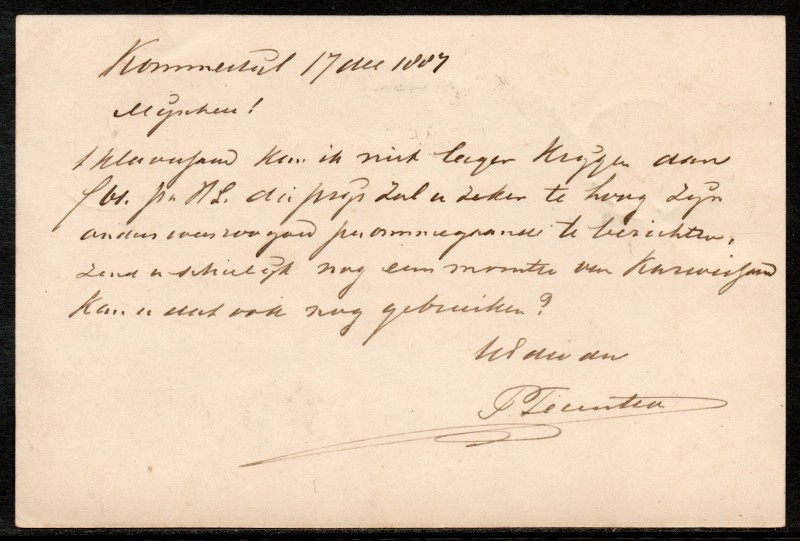 Kommerzijl 17 dec 1887
Mijnheer!
't klaverzaad kan ik niet lager krijgen dan
per H L. die prijs zal u zeker te hoog zijn
anders wees zoo goed per ommegaande te berichten,
Zend u schielijk nog een monster van Karweizaad
Kan u dat ook nog gebruiken?
UEd dw dr